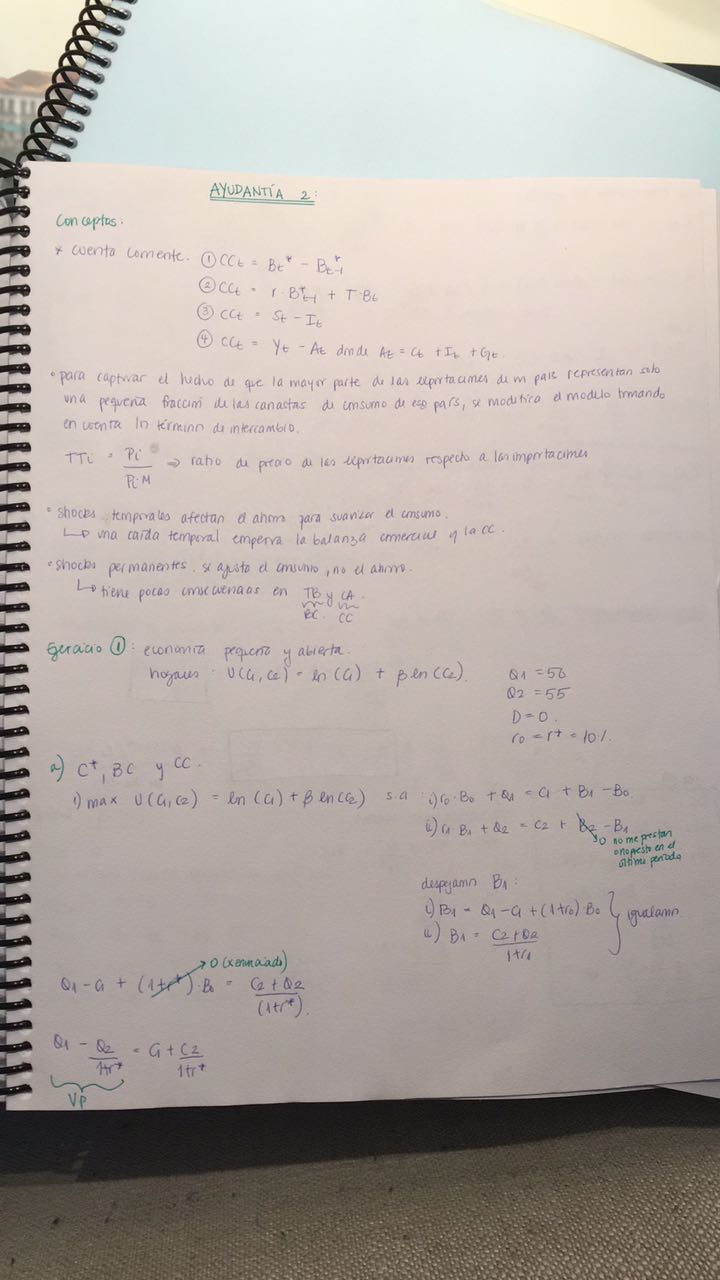 AYUDANTÍA 2:
Conceptos:
* cuenta corriente. ① CCt = Bt* - Bt-1*
② CCt = r·B*t-1 + T·Bt
③ CCt = St - It
④ CCt = Yt - At donde At = Ct + It + Gt.
° para capturar el hecho de que la mayor parte de las exportaciones de un país representan solo
una pequeña fracción de las canastas de consumo de ese país, se modifica el modelo tomando
en cuenta ln término de intercambio.
TTi = Pi / Pi·M ⇒ ratio de precio de las exportaciones respecto a las importaciones
° shocks temporales afectan el ahorro para suavizar el consumo.
↳ una caída temporal empeora la balanza comercial y la CC.
° shocks permanentes. se ajusta el consumo, no el ahorro.
↳ tiene pocas consecuencias en TB y CA.
BC. CC
Ejercicio ①: economía pequeña y abierta.
hogares: U(C1, C2) = ln(C1) + β ln(C2).
Q1 = 50
Q2 = 55
D = 0.
r0 = r* = 10%.
a) C*, BC y CC.
1) max U(C1, C2) = ln(C1) + β ln(C2) s.a: i) r0·B0 + Q1 = C1 + B1 - B0
ii) r1·B1 + Q2 = C2 + B2 - B1
0 no me prestan
o no presto en el
último período
despejamos B1:
i) B1 = Q1 - C1 + (1+r0)·B0
ii) B1 = C2 + Q2 / 1+r1
igualamos.
0 (x enunciado)
Q1 - C1 + (1+r*)·B0 = C2 + Q2 / (1+r*).
Q1 - Q2 / 1+r* = C1 + C2 / 1+r*
VP